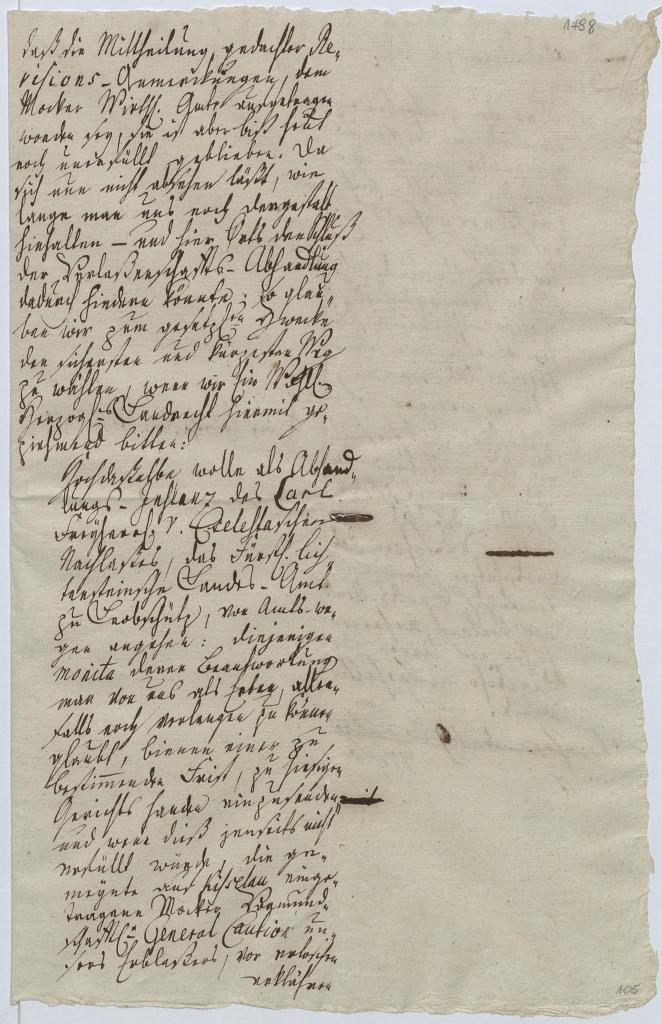 1798
daß die Mittheilung gedachter Re-
visions-Anmerckungen, dem
Mocker Wirths. Amte aufgetragen
worden sey, sie ist aber biß heut
noch unerfüllt geblieben. Da
sich nun nicht absehen läßt, wie
lange man uns noch dergestalt
hinhalten – und hier Orts den Schluß
der Verlaßenschafts-Abhandlung
dadurch hindern könnte; so glau-
ben wir zum gesetzlichen Zwecke
den sichersten und kürzesten Weg
zu wählen, wenn wir Ein
Herzogl. Landrecht hiermit ge-
ziehmend bitten:
Hochdaßelbe wolle als Abhand-
lungs-Instanz des Carl
Freyherrl. v. Nachlaßes, das Fürstl. Lich-
tensteinsche Landes-Amt
zu Leobschütz, von Amts-we-
gen angehen: diejenigen
monita deren Beantwortung
man von uns als Erben, allen-
falls noch verlangen zu können
glaubt, binnen einer zu
bestimmenden Frist, zu hiesigen
Gerichts handen einzusenden
und wenn dieß jenseits nicht
erfüllt würde, die ge-
meynte auf einge-
tragene Mocker Vormund-
schaftl. General Caution un-
sers Erblaßers, vor erloschen
erklären
105